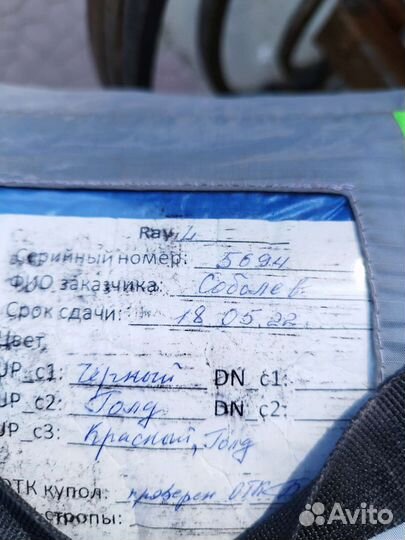 Ray
Серийный номер: 5694
ФИО заказчика: Соболев
Срок сдачи: 18.05.22
Цвет
UP_c1: Чёрный DN_c1:
UP_c2: Голд DN_c2:
UP_c3: Красный, Голд
ОТК купол: проверен ОТК
стропы:
Avito